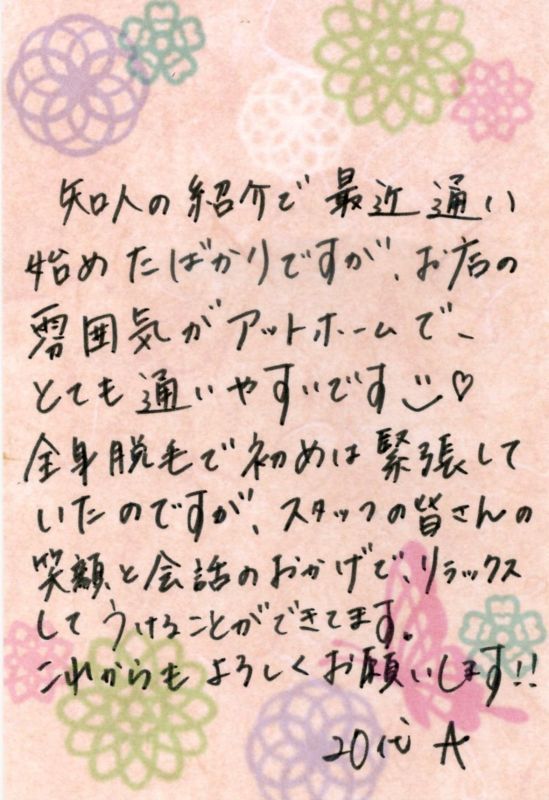 知人の紹介で最近通い
始めたばかりですが、お店の
雰囲気がアットホームで、
とても通いやすいです♡
全身脱毛で初めは緊張して
いたのですが、スタッフの皆さんの
笑顔と会話のおかげで、リラックス
してうけることができてます。
これからもよろしくお願いします!!
20代 A